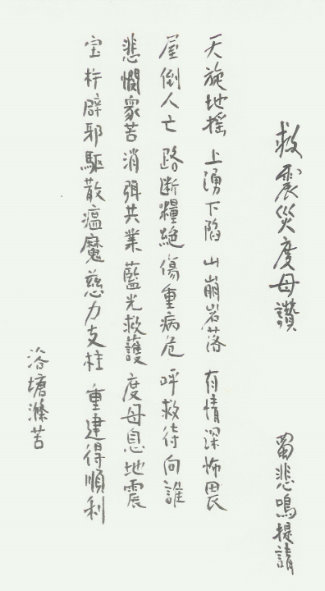 救震災度母讚
蜀悲鳴提請
天旋地搖 上湧下陷 山崩岩落 有情深怖畏
屋倒人亡 路斷糧絕 傷重病危 呼救待向誰
悲憫眾苦 消弭共業 藍光救護 度母息地震
宝杵辟邪 驅散瘟魔 慈力支柱 重建得順利